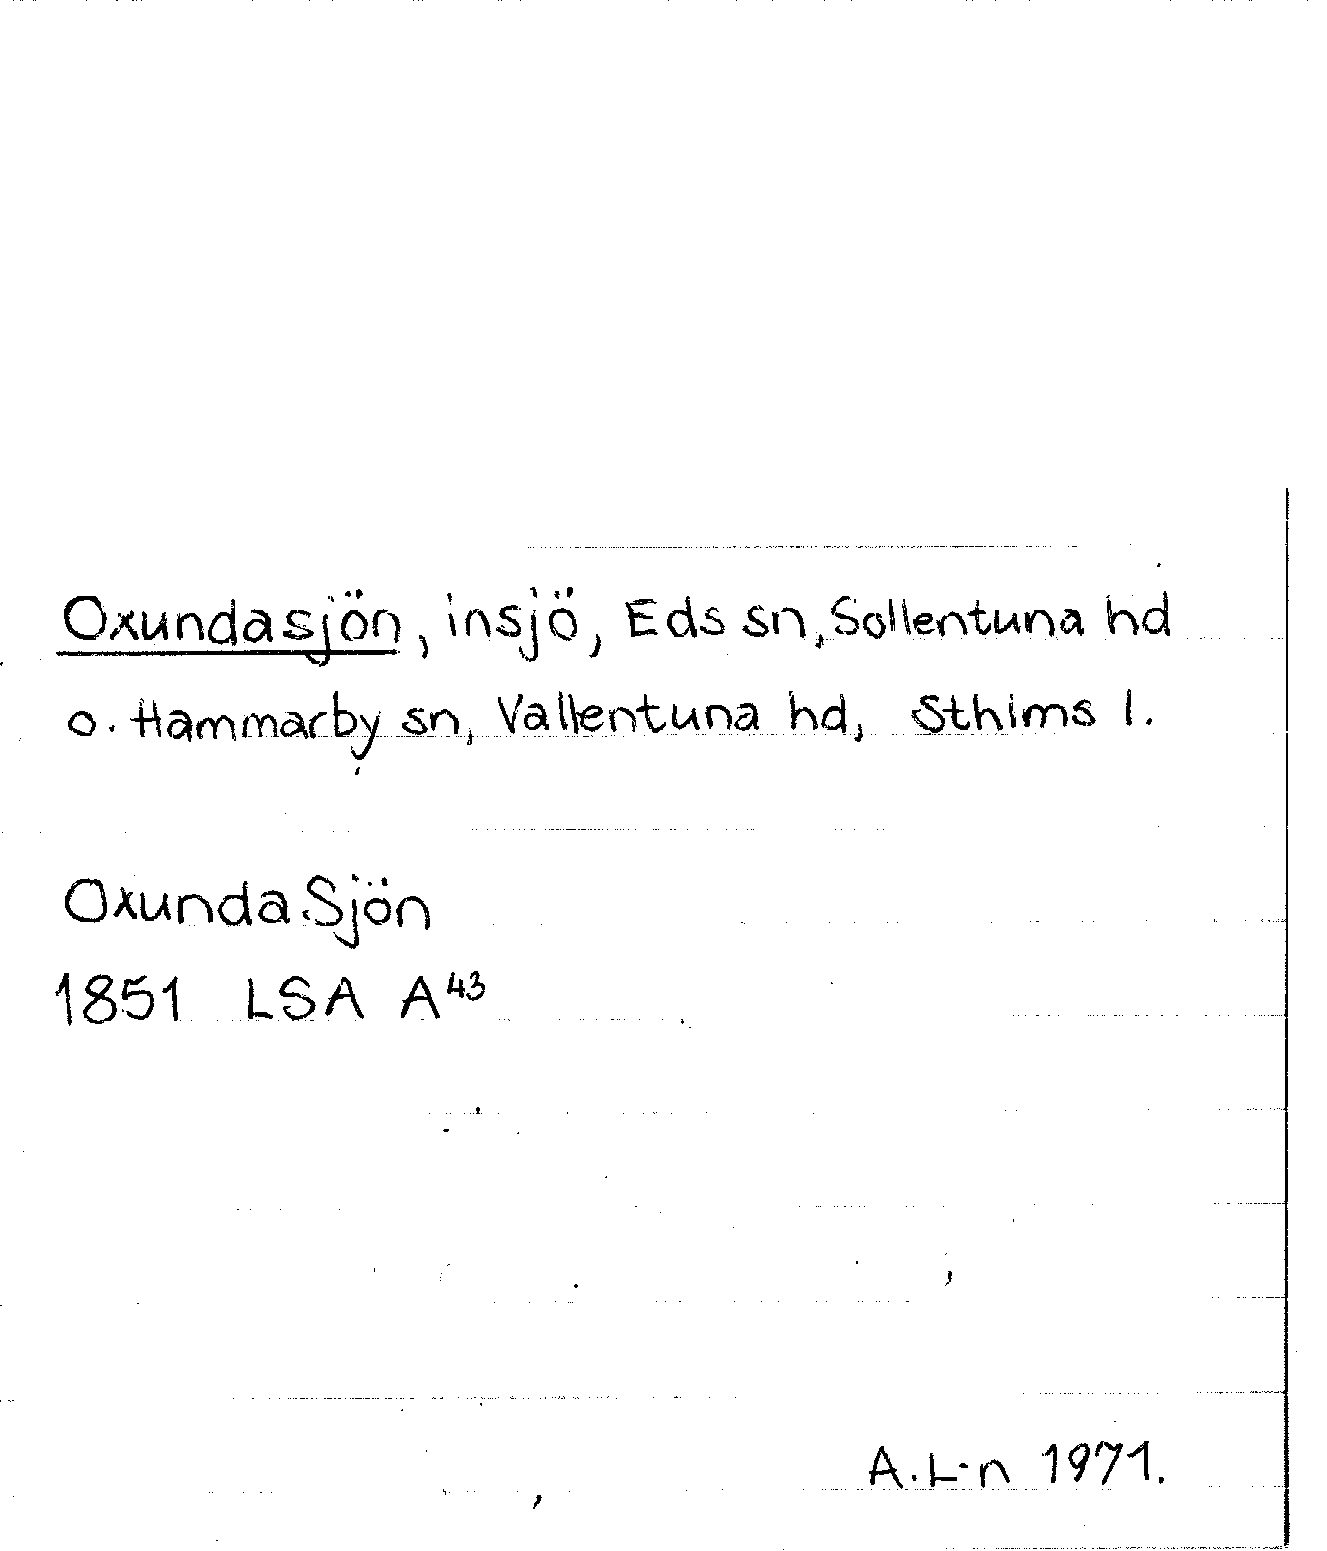 Oxundasjön, insjö, Eds sn, Sollentuna hd
o. Hammarby sn, Vallentuna hd, Sthlms l.
Oxunda Sjön
1851 LSA A⁴³
A.L-n 1971.